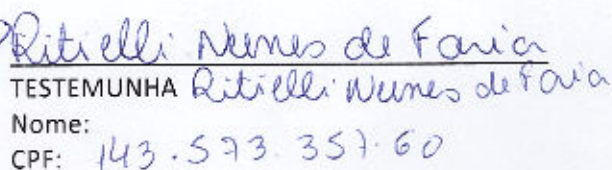 Ritielli Nunes de Faria
TESTEMUNHA Ritielli Nunes de Faria
Nome:
CPF: 143.573.357.60